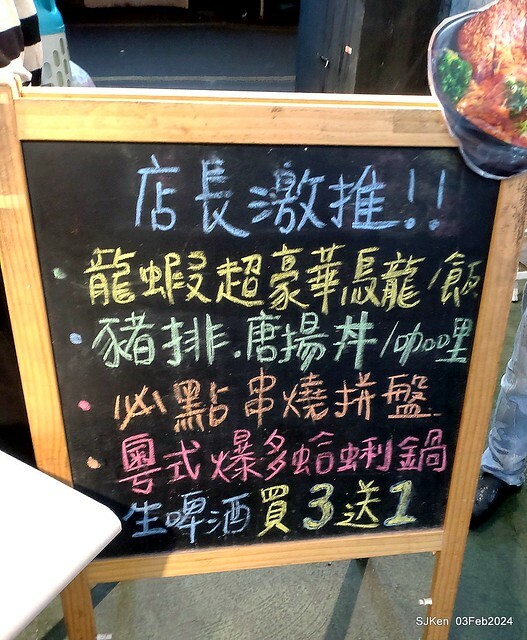 店長激推!!
龍蝦超豪華烏龍/飯
豬排.唐揚丼/咖哩
必點串燒拼盤
粵式爆多蛤蜊鍋
生啤酒買3送1
SJKen 03Feb2024